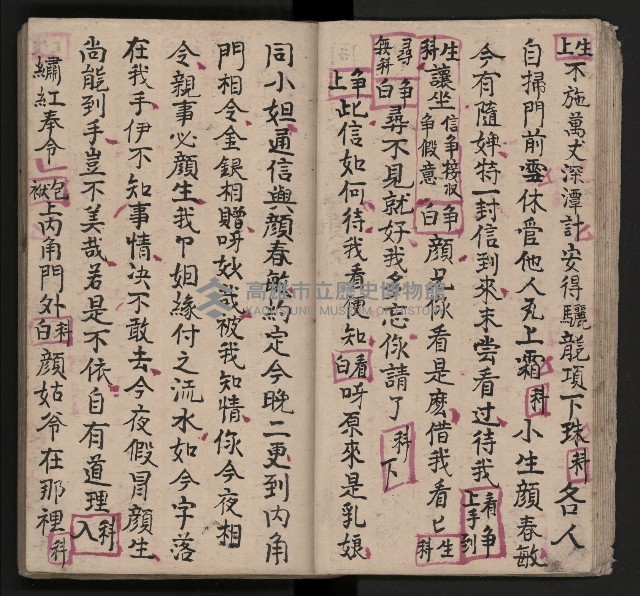 生上 不施萬丈深潭計安得驪龍項下珠 科 各人
自掃門前雪休管他人瓦上霜 科 小生顏春敏
今有隨婢特一封信到來未尝看过待我 看爭上手到
生科 讓坐 信爭接收爭假意 白爭 顏兄你看是麽借我看乜 生科
尋爭無科白 尋不見就好我多忘你請了 科下
爭上 此信如何待我看便知 看白 呀原來是乳娘
同小姐通信與顏春敏約定今晚二更到内角
門相会金銀相贈呀妙哉被我知情你今夜相
会親事必顏生我卩姐緣付之流水如今字落
在我手伊不知事情决不敢去今夜假冒顏生
尚能到手豈不美哉若是不依自有道理 科入
繡紅奉命 包袱 上内角門外 科白 顏姑爷在那裡 科
高雄市立歷史博物館
KAOHSIUNG MUSEUM OF HISTORY